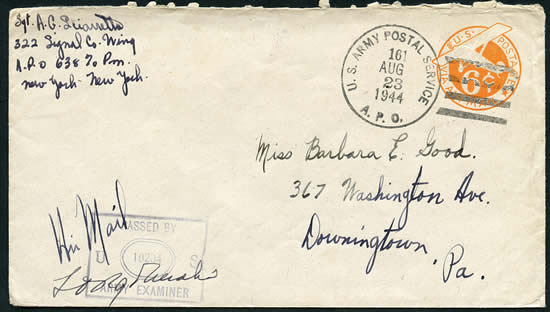 Sgt. A.C. Sciarretta
322 Signal Co. Wing
A.P.O 638 % P.m.
new york - new york.
U.S. ARMY POSTAL SERVICE
161
AUG
23
1944
A.P.O.
U.S. POSTAGE
VIA AIR MAIL
6¢
Miss Barbara E. Good.
367 Washington Ave.
Downingtown,
Pa.
Air Mail
PASSED BY
U S
ARMY EXAMINER